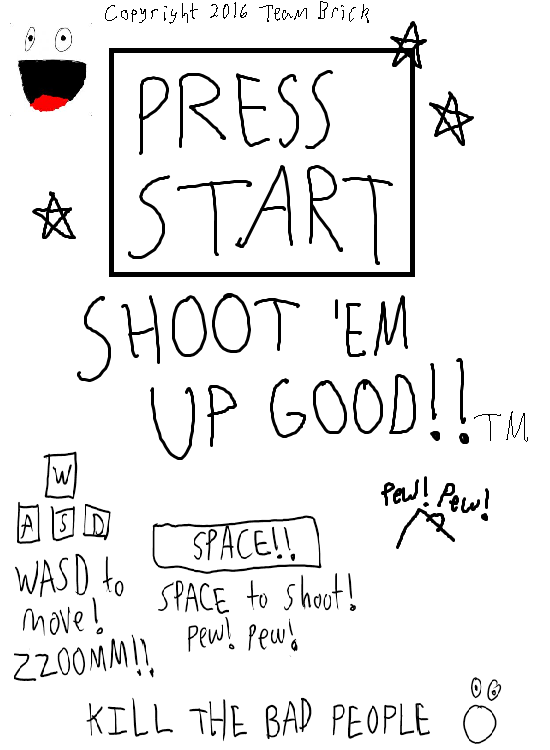 Copyright 2016 Team Brick
PRESS
START
SHOOT 'EM
UP GOOD!! TM
W
A S D
WASD to
move!
ZZOOMM!!
SPACE!!
SPACE to shoot!
Pew! Pew!
Pew! Pew!
KILL THE BAD PEOPLE